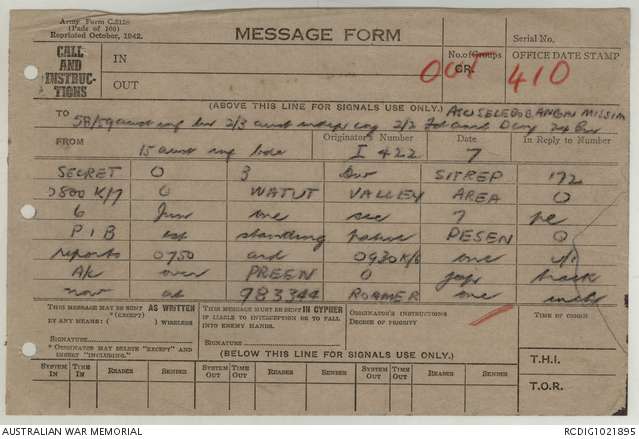 Army Form C.2128
(Pads of 100)
Reprinted October, 1942.
MESSAGE FORM
Serial No.
CALL AND INSTRUCTIONS
IN
OUT
No. of Groups
GR.
OFFICE DATE STAMP
410
(ABOVE THIS LINE FOR SIGNALS USE ONLY.)
TO 58/59 aust inf bn 2/3 aust indep coy 2/2
FROM
Originator's Number
Date
In Reply to Number
15 aust inf bde I 422 7
SECRET O 3 Div SITREP 172
0800 K/7 O WATUT VALLEY AREA O
6 Jun one sec 7 pl
P I B est standing patrol PESEN O
reports 0750 and 0930 K/6 one u/i
A/c over PREEN O jap track
now at 983344 ROAMER one
THIS MESSAGE MAY BE SENT AS WRITTEN
*(EXCEPT)
BY ANY MEANS: ( ) WIRELESS
SIGNATURE
* ORIGINATOR MAY DELETE "EXCEPT" AND INSERT "INCLUDING."
THIS MESSAGE MUST BE SENT IN CYPHER
IF LIABLE TO INTERCEPTION OR TO FALL INTO ENEMY HANDS.
SIGNATURE
ORIGINATOR'S INSTRUCTIONS
DEGREE OF PRIORITY
TIME OF ORIGIN
(BELOW THIS LINE FOR SIGNALS USE ONLY.)
T.H.I.
T.O.R.
SYSTEM IN TIME IN READER SENDER SYSTEM OUT TIME OUT READER SENDER SYSTEM OUT TIME OUT READER SENDER
AUSTRALIAN WAR MEMORIAL
RCDIG1021895